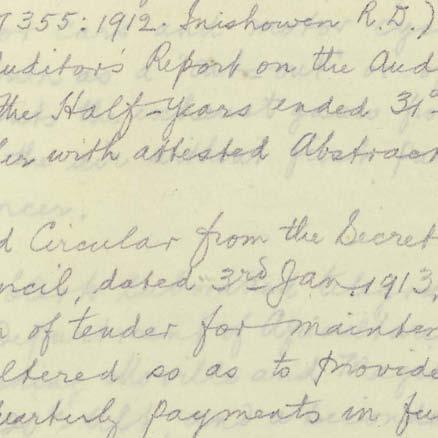 T 355: 1912. Inishowen R.D.)
Auditor's Report on the Aud
the Half-Years ended 31s
her with attested Abstract
d Circular from the Secret
ncil, dated 3rd Jan. 1913,
of tender for mainten
ltered so as to provide
uarterly payments in fu